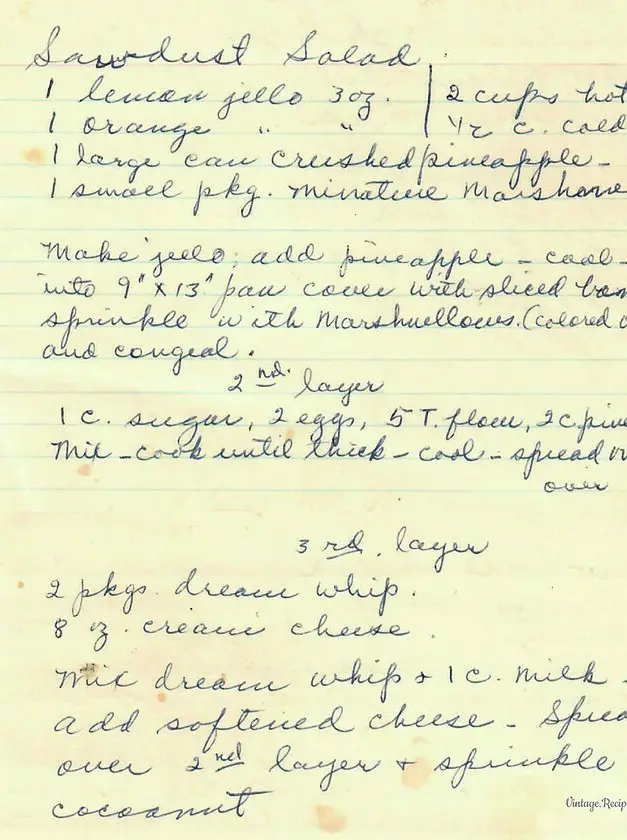 Sawdust Salad.
1 lemon jello 3 oz. | 2 cups hot
1 orange " " | 1/2 c. cold
1 large can crushed pineapple -
1 small pkg. minature Marshme
Make jello; add pineapple - cool -
into 9" x 13" pan cover with sliced ban
sprinkle with Marshmellows. (colored o
and congeal.
2nd. layer
1 c. sugar, 2 eggs, 5 T. flour, 2 c. pine
Mix - cook until thick - cool - spread
over
3rd. layer
2 pkgs. dream whip.
8 oz. cream cheese.
Mix dream whip + 1 c. milk -
add softened cheese - Sprea
over 2nd layer + sprinkle
cocoanut
Vintage.Recip